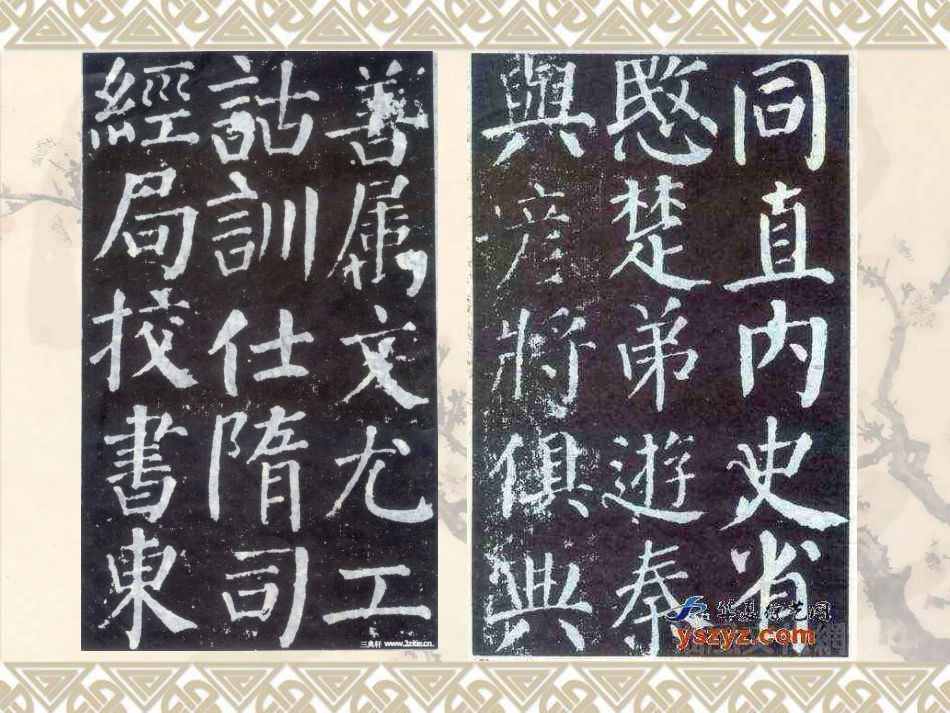 善属文尤工
詁訓仕隋司
經局挍書東
www.3zitie.cn
同直内史省
愍楚弟遊秦
與彦將俱典
yszyz.com